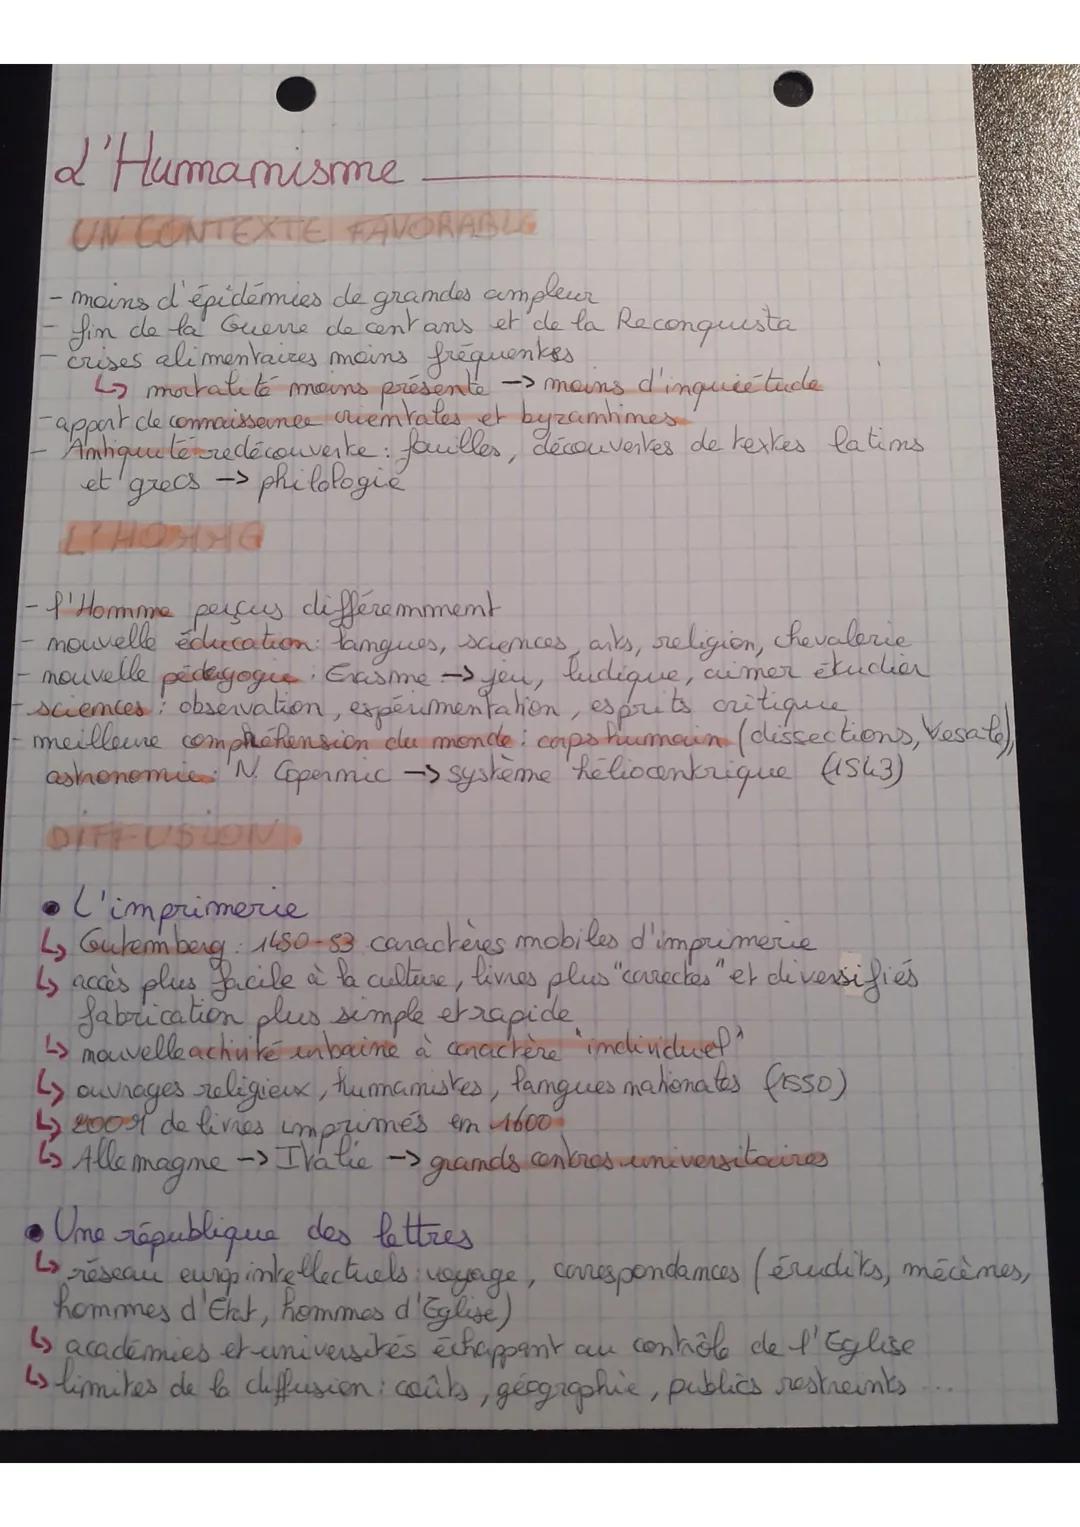 L'Humanisme
UN CONTEXTE FAVORABLE
- moins d'épidémies de grandes ampleur
- fin de la Guerre de cent ans et de la Reconquista
- crises alimentaires moins fréquentes
↳ mortalité moins présente -> moins d'inquiétude
- apport de connaissance orientales et byzantines
- Antiquité redécouverte : fouilles, découvertes de textes latins
et grecs -> philologie
L'HOMME
- l'Homme perçus différemment
- nouvelle éducation : langues, sciences, arts, religion, chevalerie
- nouvelle pédagogie : Erasme -> jeu, ludique, aimer étudier
- sciences : observation, expérimentation, esprits critique
- meilleure compréhension du monde : corps humain (dissections, Vesale),
astronomie : N. Copernic -> système héliocentrique (1543)
DIFFUSION
• L'imprimerie
↳ Gutemberg : 1450-53 caractères mobiles d'imprimerie
↳ accès plus facile à la culture, livres plus "correctes" et diversifiés
fabrication plus simple et rapide
↳ nouvelle activité urbaine à caractère "individuel"
↳ ouvrages religieux, humanistes, langues nationales (1550)
↳ de livres imprimés en 1600
↳ Allemagne -> Italie -> grands centres universitaires
• Une république des lettres
↳ réseau europ intellectuels : voyage, correspondances (érudits, mécènes,
hommes d'Etat, hommes d'Eglise)
↳ académies et universités échappent au contrôle de l'Eglise
↳ limites de la diffusion : coûts, géographie, publics restreints ...